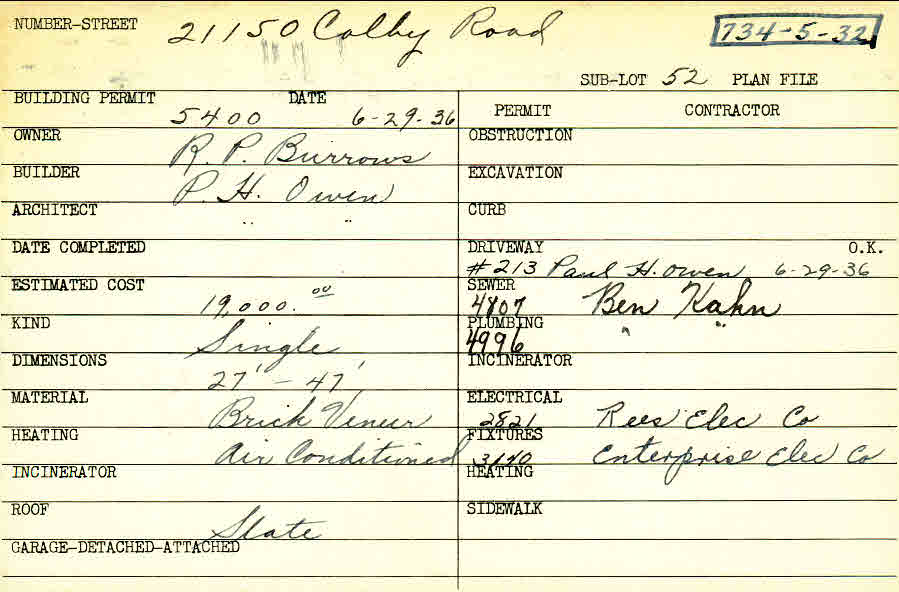 NUMBER-STREET 21150 Colby Road 734-5-32
SUB-LOT 52 PLAN FILE
BUILDING PERMIT 5400 DATE 6-29-36
PERMIT CONTRACTOR
OWNER R. P. Burrows
OBSTRUCTION
BUILDER P. H. Owen
EXCAVATION
ARCHITECT " "
CURB
DATE COMPLETED
DRIVEWAY O.K.
#213 Paul H. Owen 6-29-36
ESTIMATED COST 19,000.00
SEWER
4807 Ben Kahn
KIND Single
PLUMBING
4996 " "
DIMENSIONS 27' - 47'
INCINERATOR
MATERIAL Brick Veneer
ELECTRICAL
2821 Rees Elec Co
HEATING Air Conditioned
FIXTURES
3140 Enterprise Elec Co
INCINERATOR
HEATING
ROOF Slate
SIDEWALK
GARAGE-DETACHED-ATTACHED